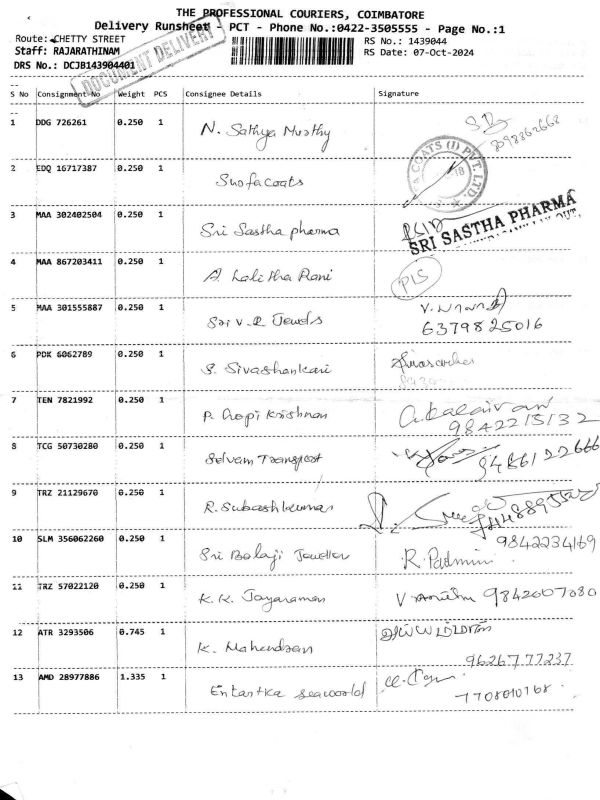 THE PROFESSIONAL COURIERS, COIMBATORE
Delivery Runsheet - PCT - Phone No.:0422-3505555 - Page No.:1
Route: CHETTY STREET
RS No.: 1439044
Staff: RAJARATHINAM
RS Date: 07-Oct-2024
DRS No.: DCJB143904401
DOCUMENT DELIVERY
S No Consignment No Weight PCS Consignee Details Signature
1 DDG 726261 0.250 1 N. Sathya Murthy
2 EDQ 16717387 0.250 1 Shofacoats COATS (I) PVT. LTD.
3 MAA 302402504 0.250 1 Sri Sastha pharma SRI SASTHA PHARMA
4 MAA 867203411 0.250 1 A. Lalitha Rani PLS
5 MAA 301555887 0.250 1 Sri V.R Jewels
6379825016
6 PDK 6062789 0.250 1 S. Sivashankari
7 TEN 7821992 0.250 1 P. Gopi Krishnan
9842215132
8 TCG 50730280 0.250 1 Selvam Transport 9486122666
9 TRZ 21129670 0.250 1 R. Subashkumar
10 SLM 356062260 0.250 1 Sri Balaji Jeweller 9842234169
R. Padmini
11 TRZ 57022120 0.250 1 K.K. Jayaraman 9842007080
12 ATR 3293506 0.745 1 K. Mahendran
9626777237
13 AMD 28977886 1.335 1 Entartica seaworld
7708010768